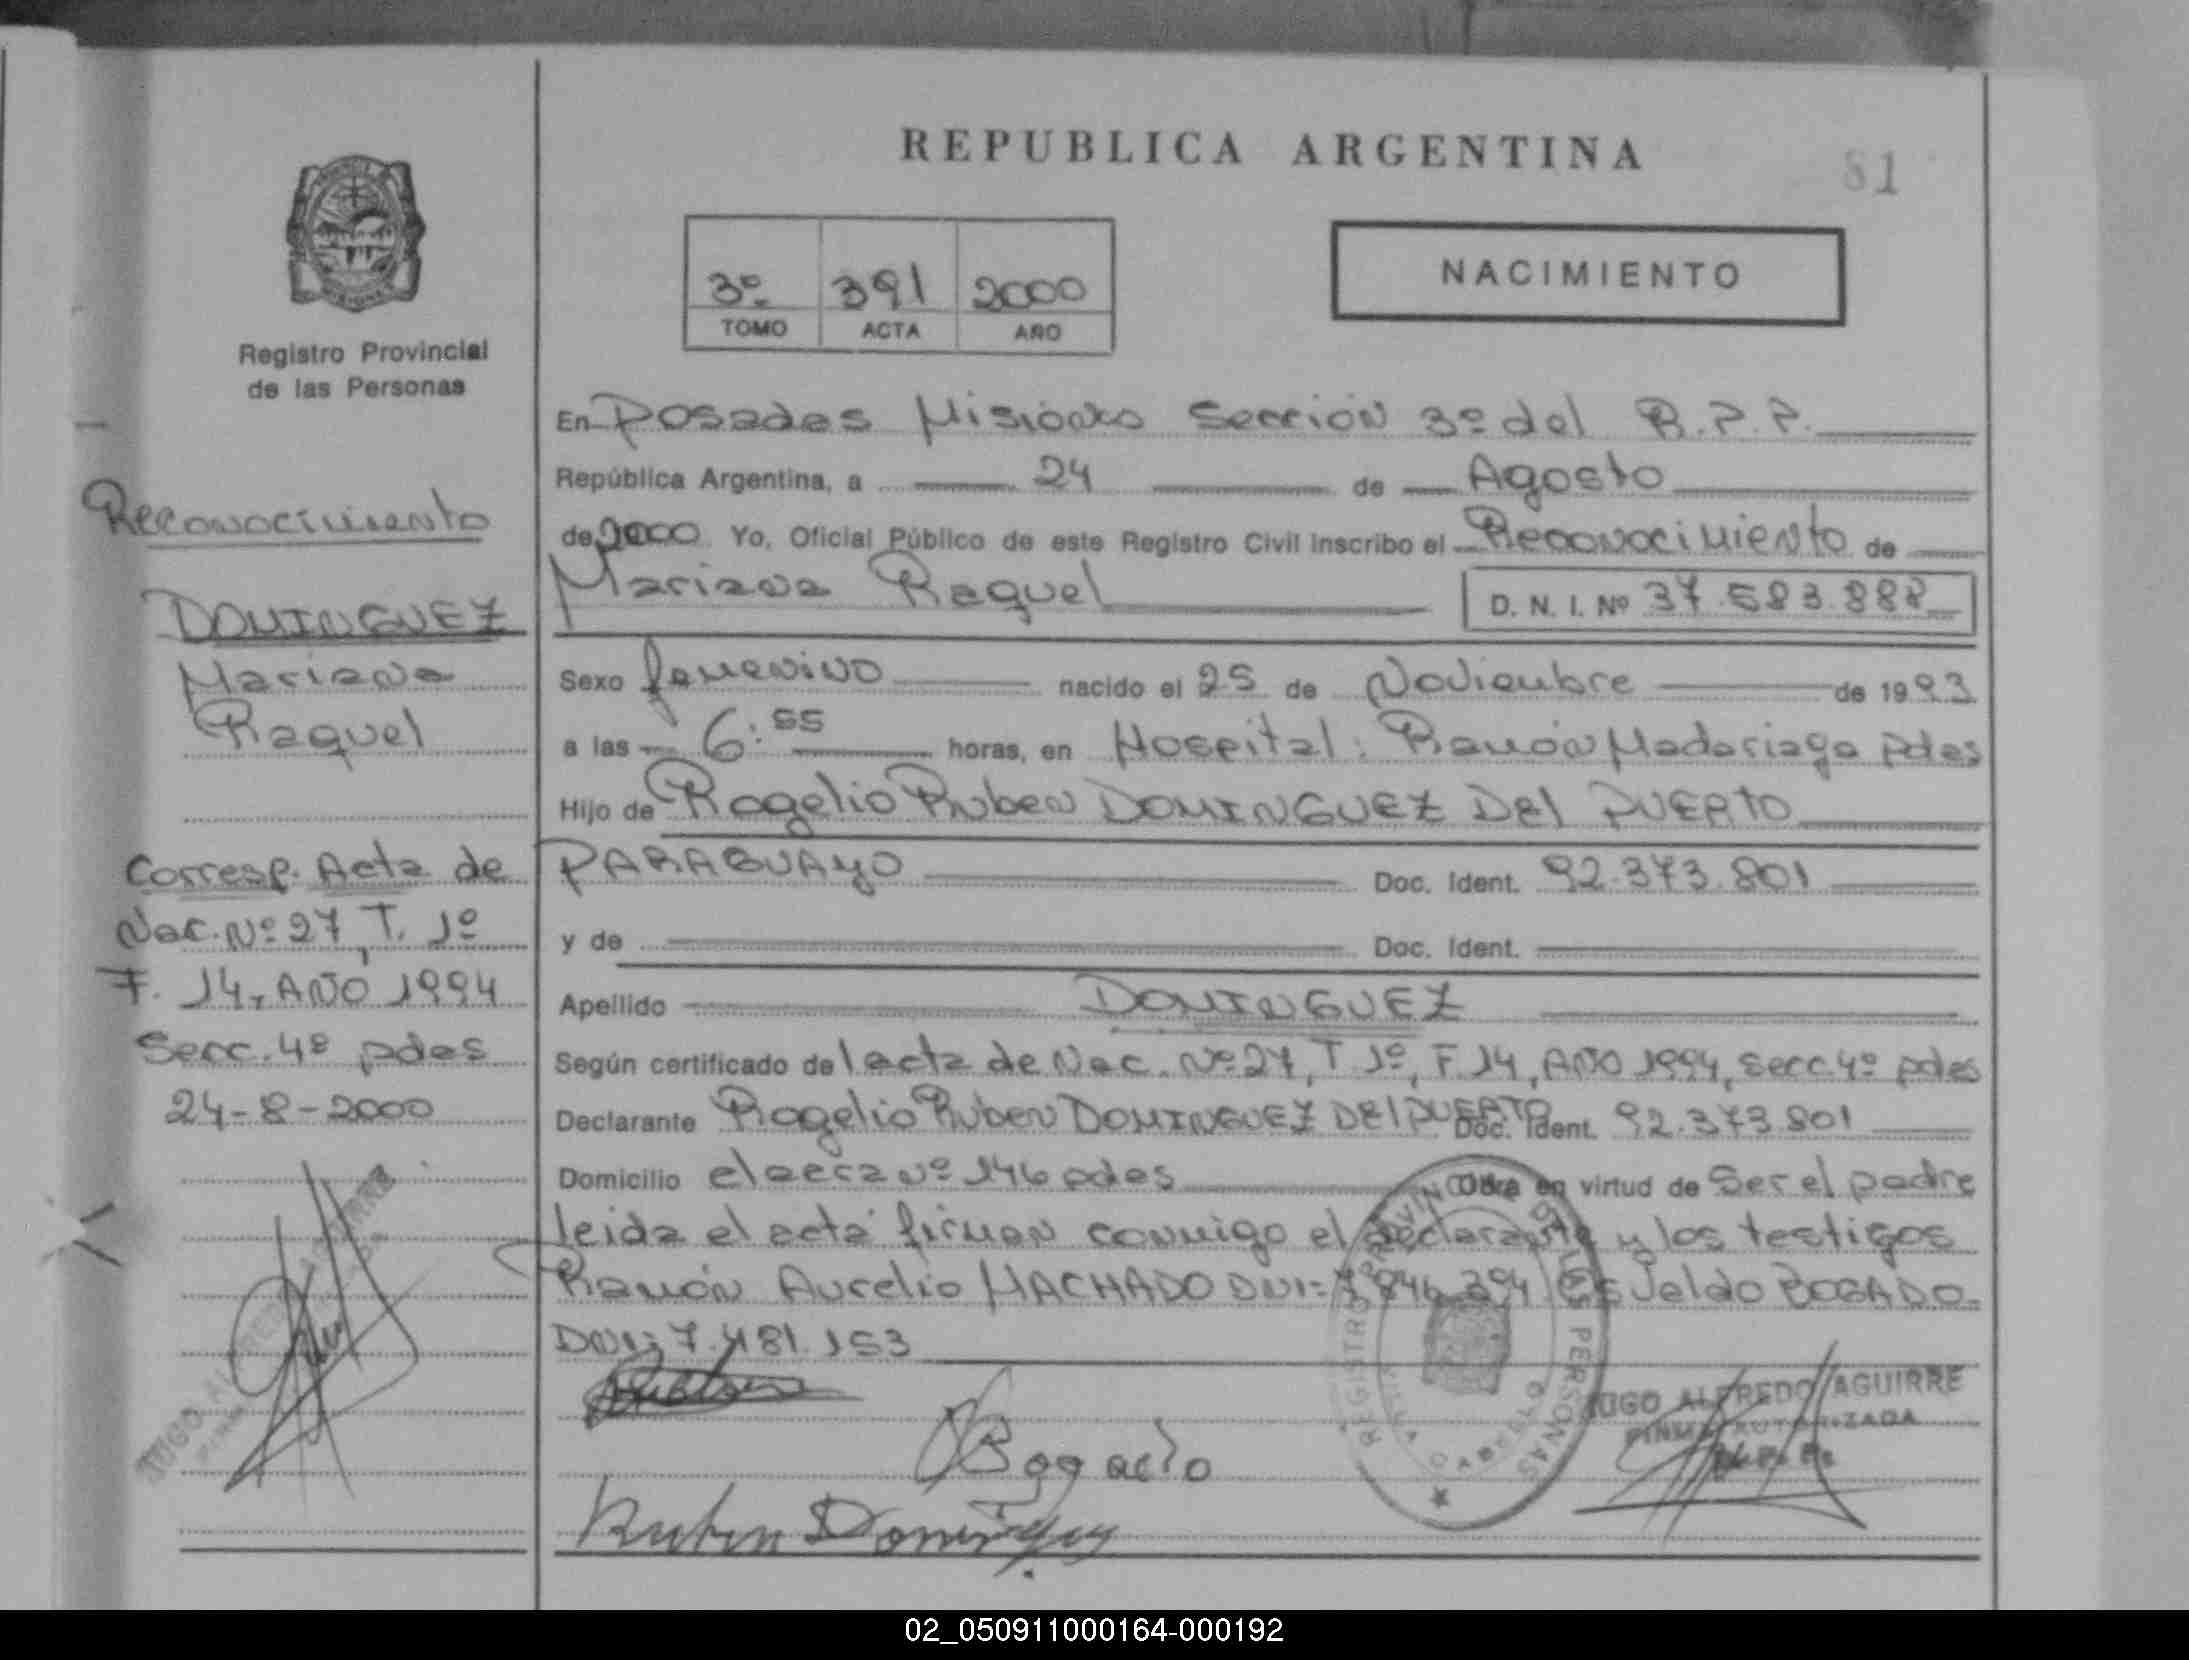 REPUBLICA ARGENTINA
81
3º 391 2000
TOMO ACTA AÑO
NACIMIENTO
Registro Provincial
de las Personas
Reconocimiento
DOMINGUEZ
Mariana
Raquel
Corresp. Acta de
Nac. Nº 27, T. 1º
F. 14, AÑO 1994
Secc. 4º pdas
24-8-2000
En Posadas Misiones Sección 3º del R.P.P.
República Argentina, a 24 de Agosto
de 2000 Yo, Oficial Público de este Registro Civil inscribo el Reconocimiento de
Mariana Raquel D. N. I. Nº 37.583.888
Sexo femenino nacido el 25 de Noviembre de 1993
a las 6:55 horas, en Hospital: Ramón Madariaga pdas
Hijo de Rogelio Ruben DOMINGUEZ Del PUERTO
PARAGUAYO Doc. Ident. 92.373.801
y de Doc. Ident.
Apellido DOMINGUEZ
Según certificado de l acta de Nac. Nº 27, T 1º, F 14, AÑO 1994, Secc. 4º pdas
Declarante Rogelio Ruben DOMINGUEZ Del PUERTO Doc. Ident. 92.373.801
Domicilio chacra Nº 146 pdas Obra en virtud de Ser el padre
leida el acta firman conmigo el declarante y los testigos
Ramón Aurelio MACHADO DNI: 7.846.394 Osvaldo BOGADO
DNI: 7.481.153
HUGO ALFREDO AGUIRRE
FIRMA AUTORIZADA
Bogado
REGISTRO PROVINCIAL DE LAS PERSONAS
Ruben Dominguez
HUGO ALFREDO AGUIRRE
02_050911000164-000192